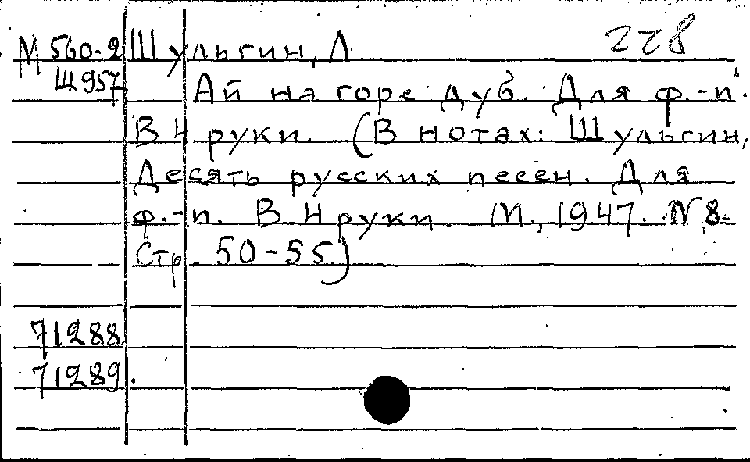 М 560-2 Шульгин, Л 228
Ш957 Ай на горе дуб. Для ф.-п.
В 4 руки. (В нотах: Шульгин,
Десять русских песен. Для
ф.-п. В 4 руки. М., 1947. N 8.
Стр. 50-55)
71288
71289.